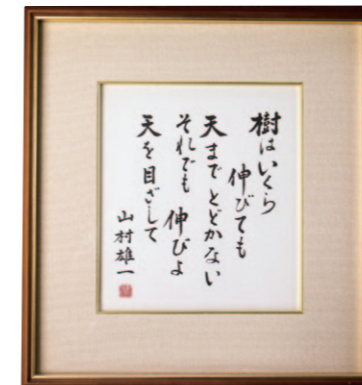 樹はいくら
伸びても
天まで とどかない
それでも 伸びよ
天を目ざして
山村雄一